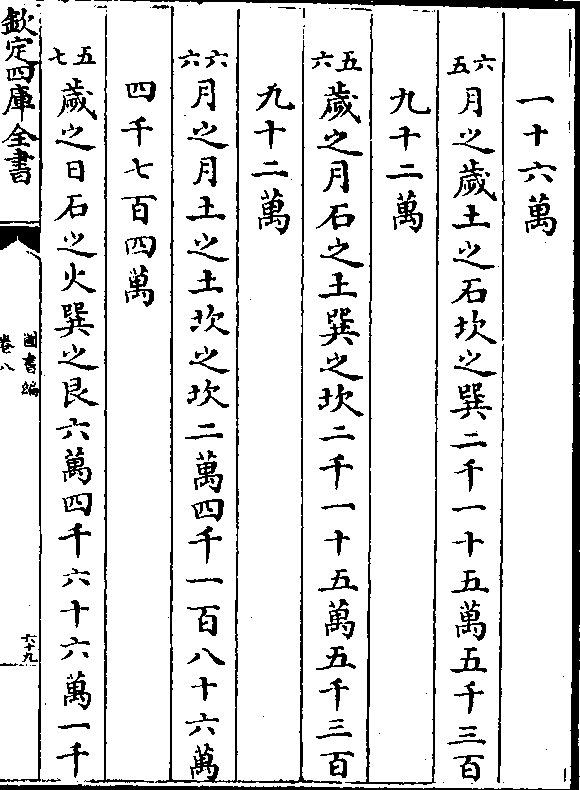 一十六萬
六五月之歲土之石坎之巽二千一十五萬五千三百
九十二萬
五六歲之月石之土巽之坎二千一十五萬五千三百
九十二萬
六六月之月土之土坎之坎二萬四千一百八十六萬
四千七百四萬
五七歲之日石之火巽之艮六萬四千六十六萬一千
欽定四庫全書
圖書編
卷八
六十九